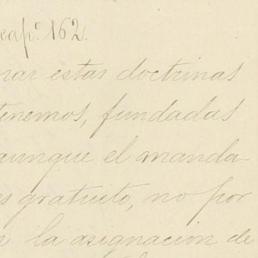 cap.º 162.
nar estas doctrinas
tenemos, fundadas
aunque el manda
es gratuito, no por
la asignacion de